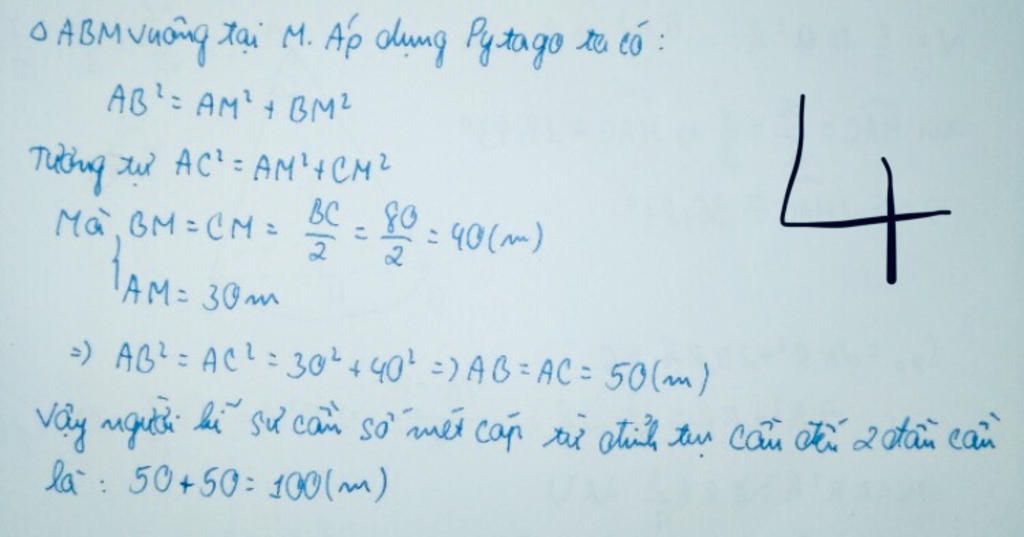 Δ ABM vuông tại M. Áp dụng Pytago ta có :
AB² = AM² + BM²
Tương tự AC² = AM² + CM²
Mà BM = CM = BC/2 = 80/2 = 40(m)
AM = 30m
=> AB² = AC² = 30² + 40² => AB = AC = 50(m)
Vậy người kĩ sư cần số mét cáp từ đỉnh trụ cầu đến 2 đầu cầu
là : 50 + 50 = 100(m)
4